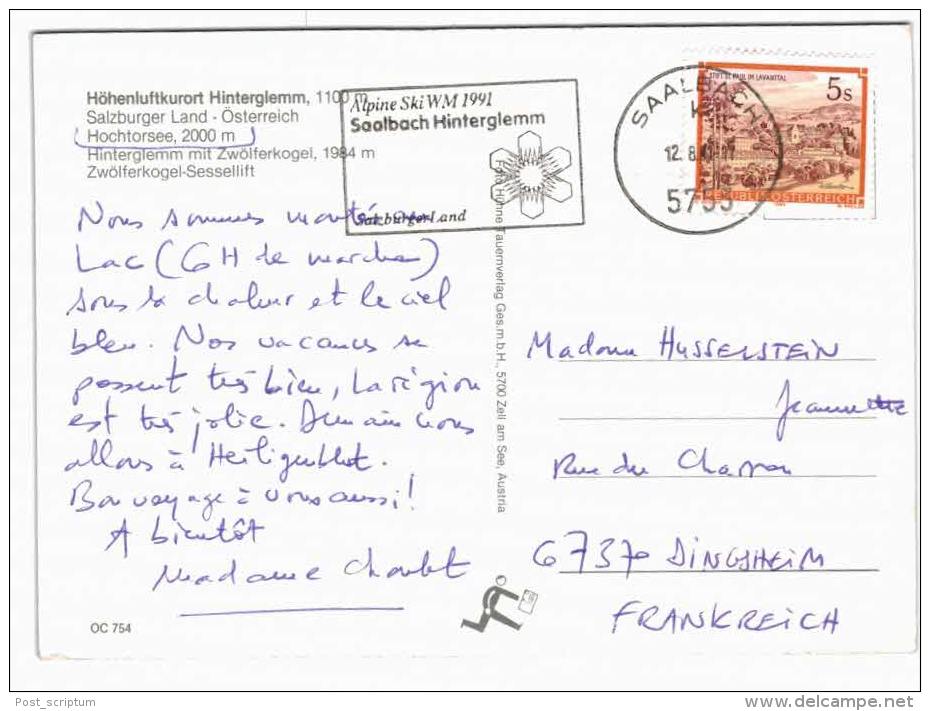 Höhenluftkurort Hinterglemm, 1100 m
Salzburger Land - Österreich
Hochtorsee, 2000 m
Hinterglemm mit Zwölferkogel, 1984 m
Zwölferkogel-Sessellift
Alpine Ski WM 1991
Saalbach Hinterglemm
SalzburgerLand
SAALBACH
12. 8.
5753
STIFT ST. PAUL IM LAVANTTAL
5 S
REPUBLIK ÖSTERREICH
Nous sommes montés au
Lac (6H de marche)
sous la chaleur et le ciel
bleu. Nos vacances se
passent très bien, la région
est très jolie. Demain nous
allons à Heiligenblut.
Bon voyage à vous aussi!
A bientôt
Madame
Foto Höhne Tauernverlag Ges.m.b.H., 5700 Zell am See, Austria
Madame HUSSELSTEIN
Jeannette
Rue du Charron
67370 DINGSHEIM
FRANKREICH
OC 754
Post_scriptum
delcampe.net